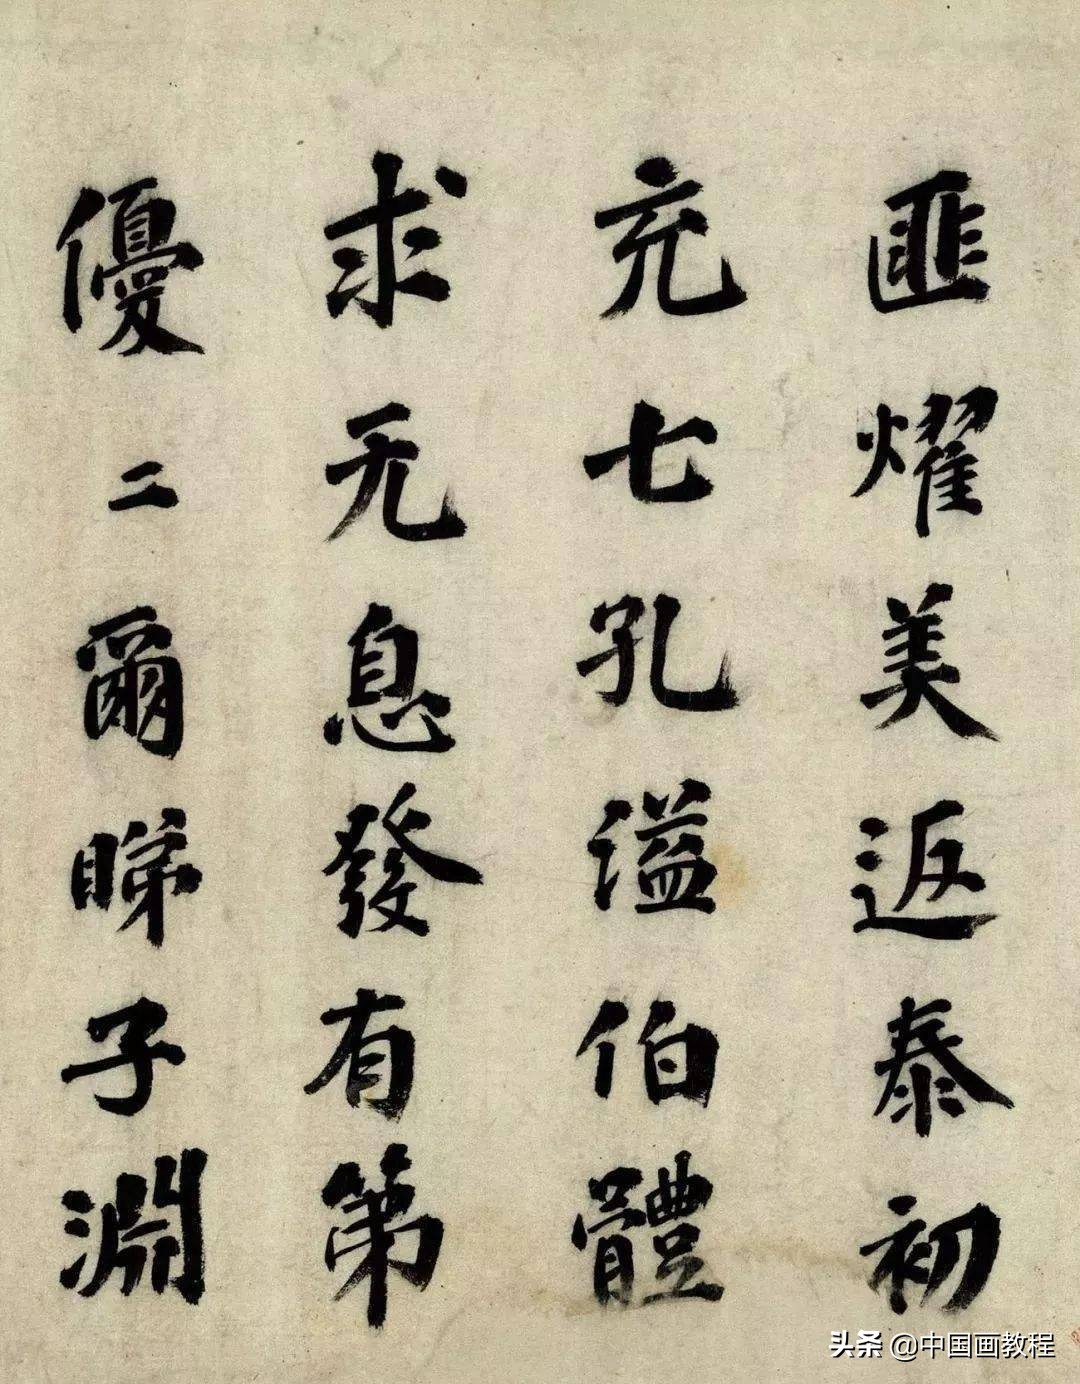 匪耀美返泰初
充七孔溢伯體
求无息發有第
優二爾睇子淵
头条 @中国画教程